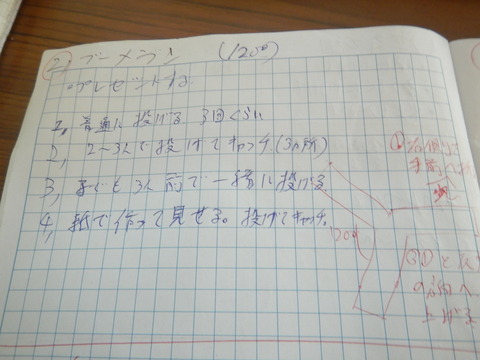 ② ブーメラン (120°)
・プレゼントする。
1. 普通に投げる 3回くらい
2, 2~3人で投げてキャッチ(3ヵ所)
3, 子ども3人前で一緒に投げる
4, 紙で作って見せる。投げてキャッチ。
①
手前へ
120°
方向へ
上げる